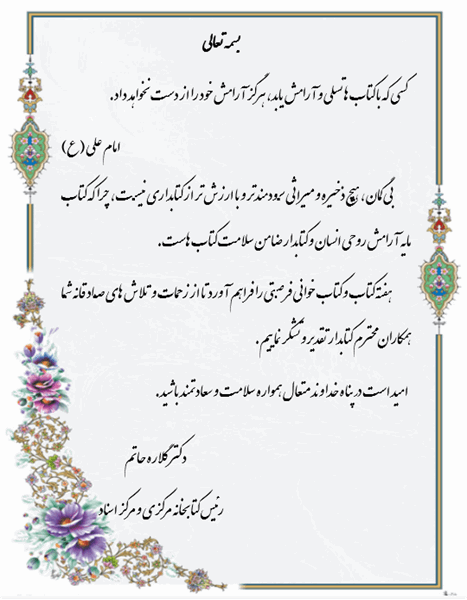 بسمه تعالی
کسی که با کتاب ها تسلی و آرامش یابد، هرگز آرامش خود را از دست نخواهد داد.
امام علی (ع)
بی گمان، هیچ ذخیره و میراثی سودمندتر و با ارزش تر از کتابداری نیست، چرا که کتاب
مایه آرامش روحی انسان و کتابدار ضامن سلامت کتاب هاست.
هفته کتاب و کتاب خوانی فرصتی را فراهم آورد تا از زحمات و تلاش های صادقانه شما
همکاران محترم کتابدار تقدیر و تشکر نماییم.
امید است در پناه خداوند متعال همواره سلامت و سعادتمند باشید.
دکتر گلاره حاتم
رئیس کتابخانه مرکزی و مرکز اسناد